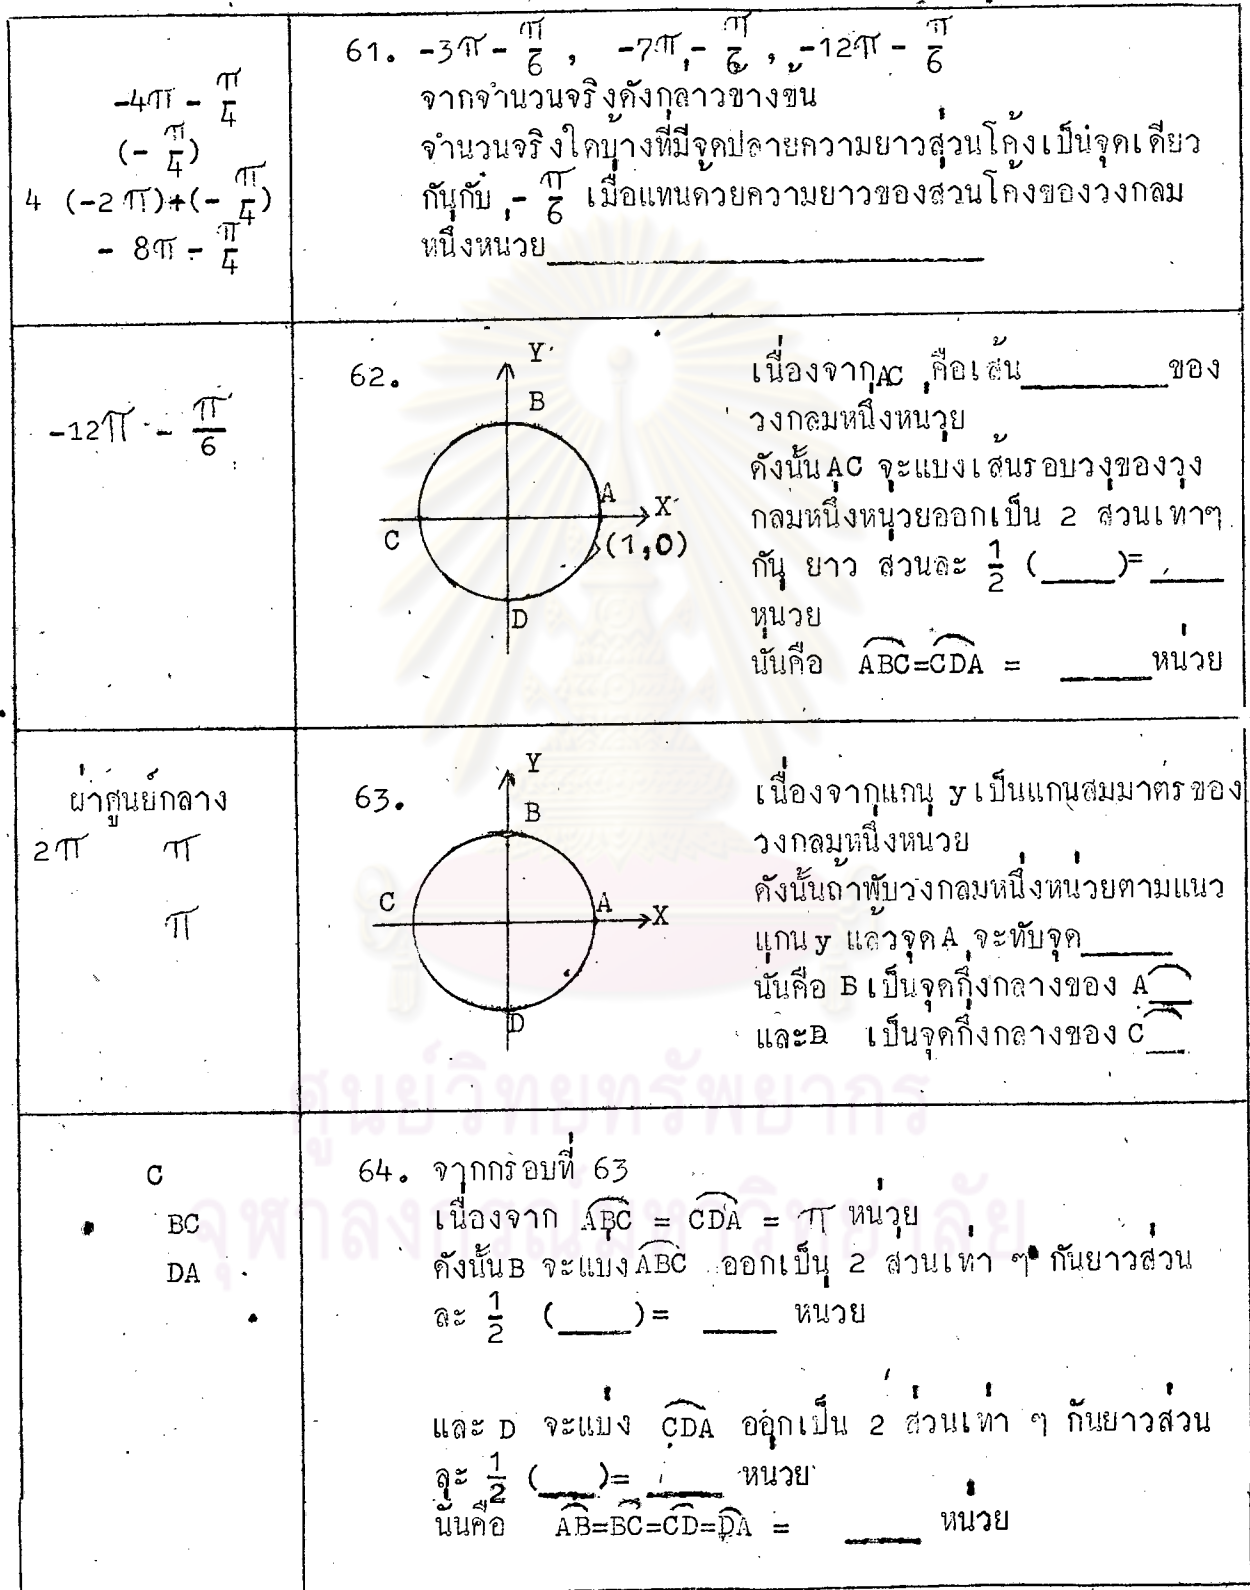 -4π - π/4
(- π/4)
4 (-2π)+(- π/4)
- 8π - π/4
61. -3π - π/6 , -7π - π/6 , -12π - π/6
จากจำนวนจริงดังกล่าวข้างขน
จำนวนจริงใดบ้างที่มีจุดปลายความยาวส่วนโค้งเป็นจุดเดียว
กันกับ - π/6 เมื่อแทนด้วยความยาวของส่วนโค้งของวงกลม
หนึ่งหน่วย______
-12π - π/6
62.
Y
B
A
X
C
(1,0)
D
เนื่องจาก AC คือเส้น______ของ
วงกลมหนึ่งหน่วย
ดังนั้น AC จะแบ่งเส้นรอบวงของวง
กลมหนึ่งหน่วยออกเป็น 2 ส่วนเท่าๆ
กัน ยาว ส่วนละ 1/2 (____)= ____
หน่วย
นั่นคือ ABC=CDA = ____หน่วย
ผ่าศูนย์กลาง
2π π
π
63.
Y
B
C
A
X
D
เนื่องจากแกน y เป็นแกนสมมาตรของ
วงกลมหนึ่งหน่วย
ดังนั้นถ้าพับวงกลมหนึ่งหน่วยตามแนว
แกน y แล้วจุด A จะทับจุด____
นั่นคือ B เป็นจุดกึ่งกลางของ A__
และD เป็นจุดกึ่งกลางของ C__
ศูนย์วิทยทรัพยากร
จุฬาลงกรณ์มหาวิทยาลัย
C
BC
DA
64. จากกรอบที่ 63
เนื่องจาก ABC = CDA = π หน่วย
ดังนั้น B จะแบ่ง ABC ออกเป็น 2 ส่วนเท่า ๆ กันยาวส่วน
ละ 1/2 (____)= ____ หน่วย
และ D จะแบ่ง CDA ออกเป็น 2 ส่วนเท่า ๆ กันยาวส่วน
ละ 1/2 (___)= ____ หน่วย
นั่นคือ AB=BC=CD=DA = ____ หน่วย